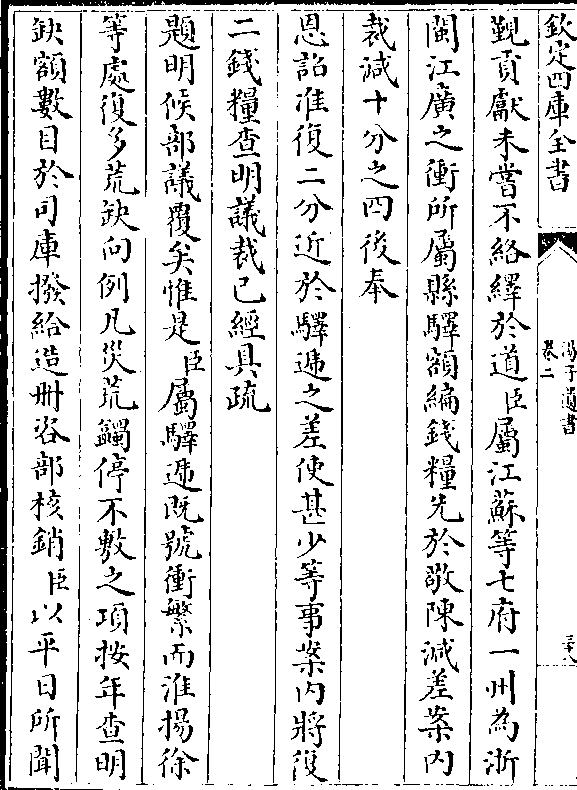 欽定四庫全書
湯子遺書
卷二
三十八
覲貢獻未嘗不絡繹於道臣屬江蘇等七府一州為浙
閩江廣之衝所屬縣驛額編錢糧先於敬陳減差案內
裁減十分之四後奉
恩詔准復二分近於驛遞之差使甚少等事案內將復
二錢糧查明議裁已經具疏
題明候部議覆矣惟是臣屬驛遞既號衝繁而淮揚徐
等處復多荒缺向例凡災荒蠲停不敷之項按年查明
缺額數目於司庫撥給造冊咨部核銷臣以平日所聞